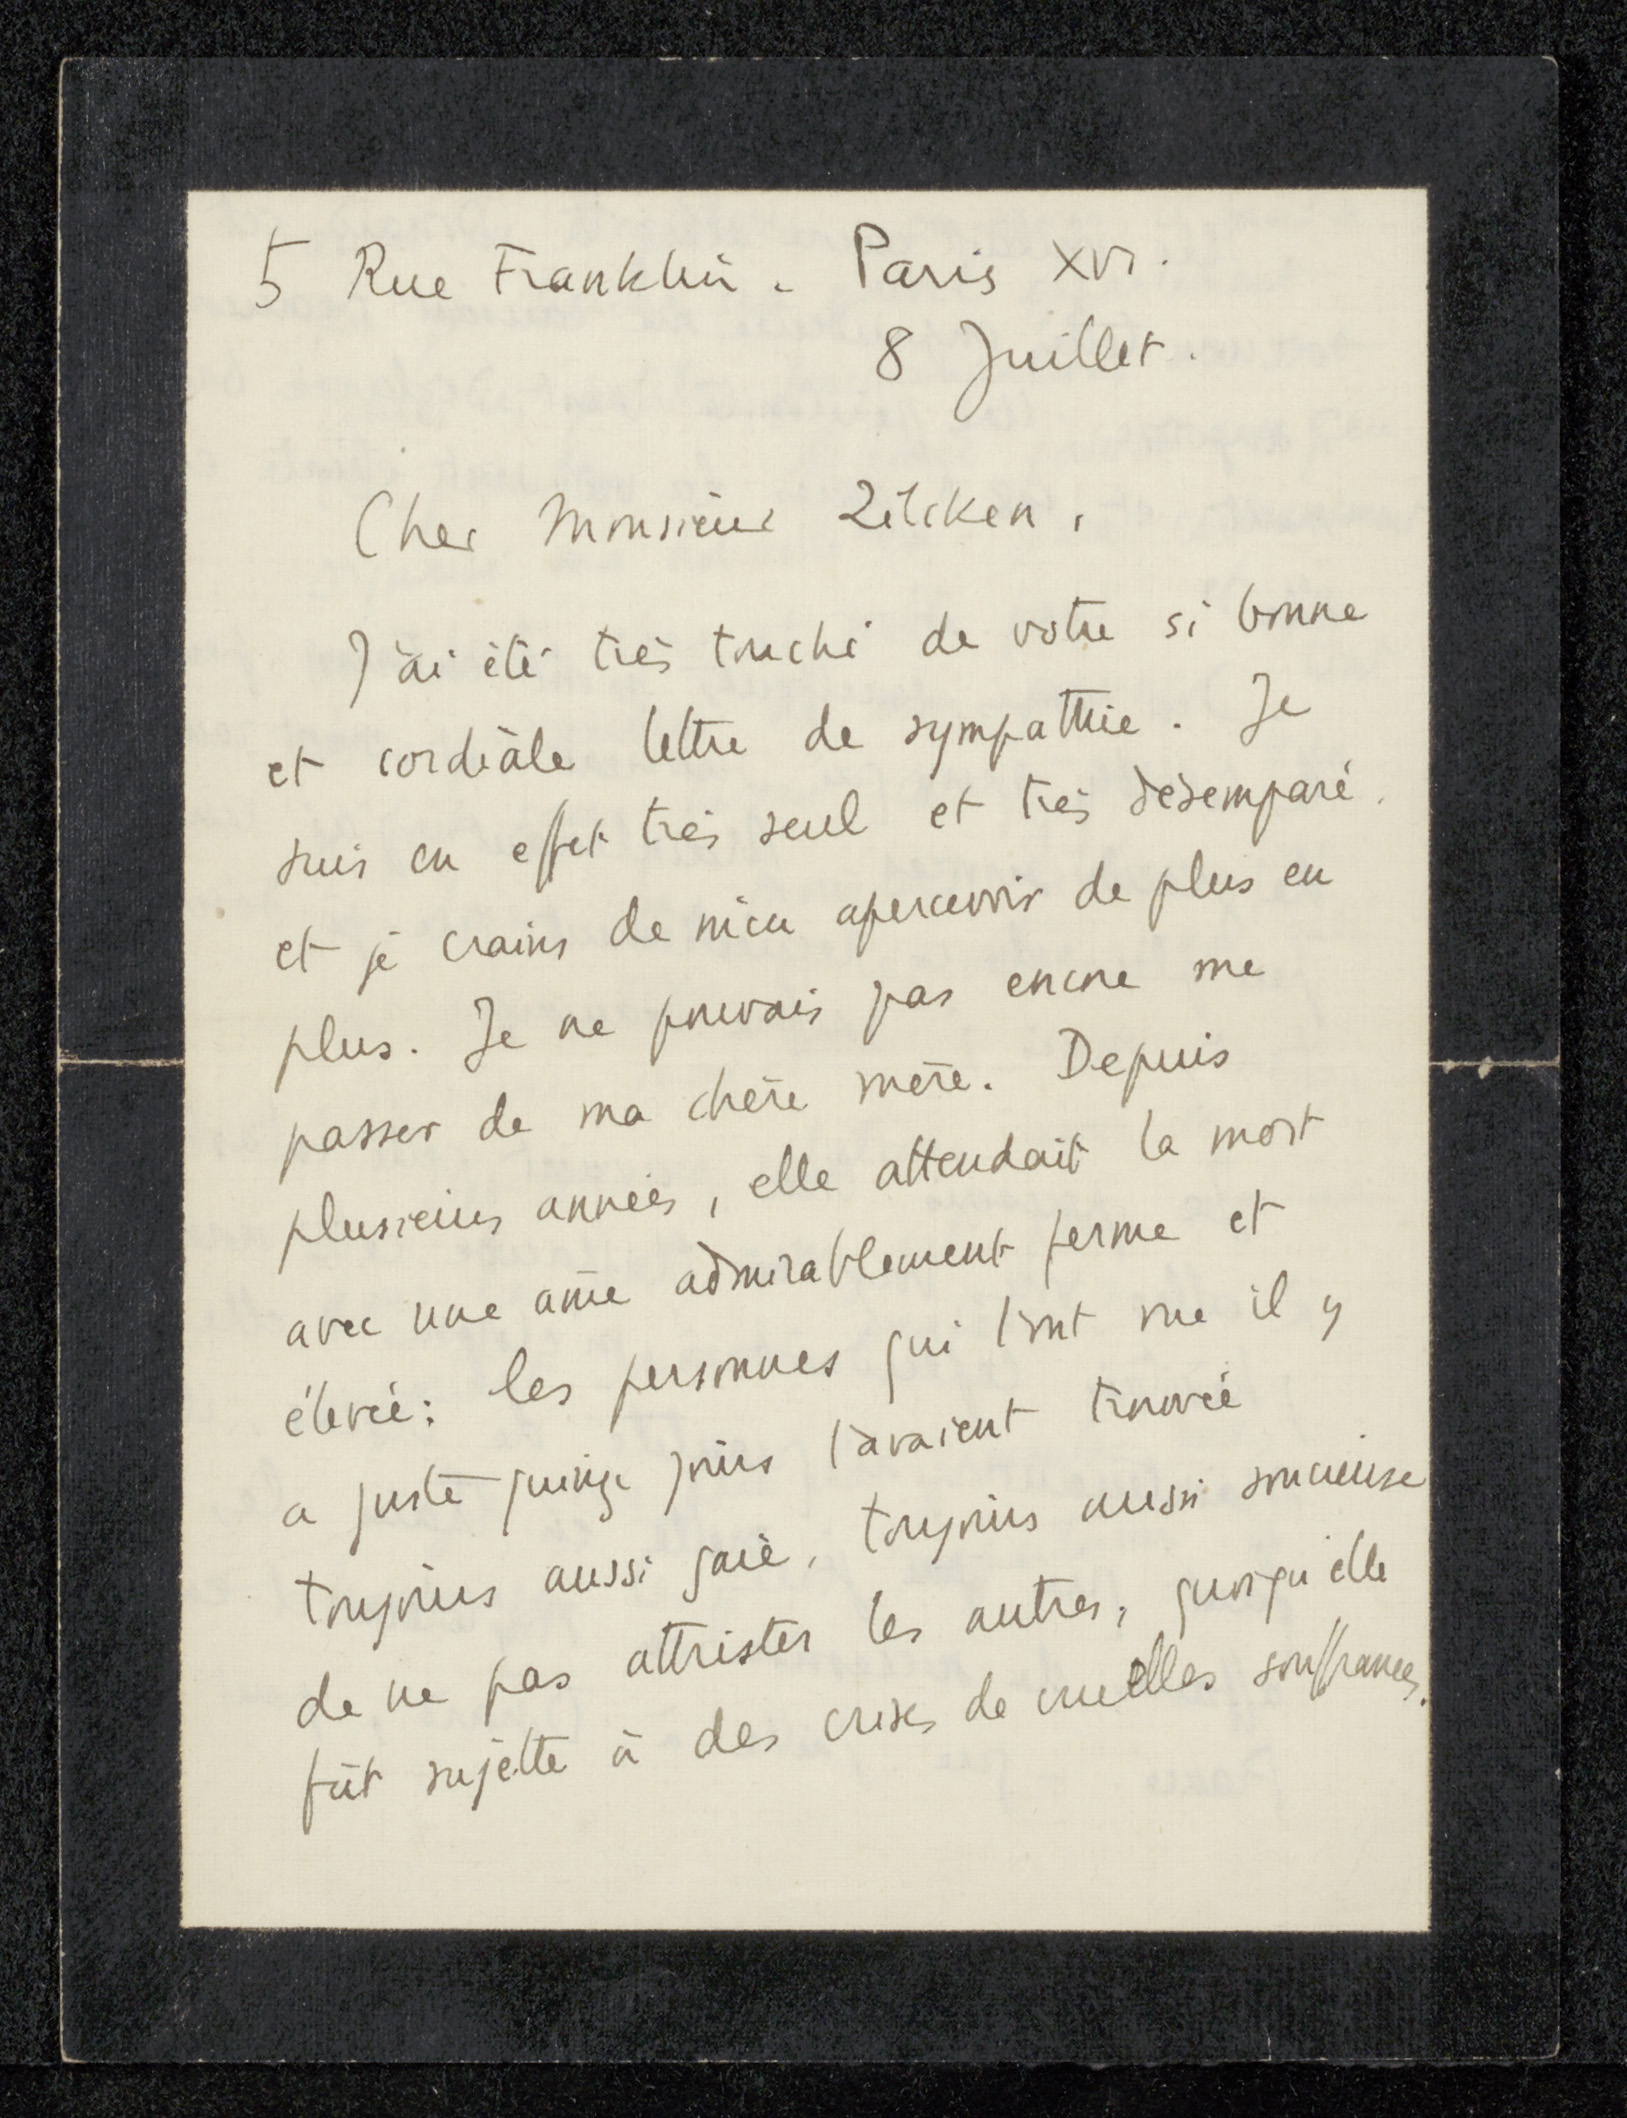 5 Rue Franklin. Paris XVI.
8 Juillet.
Cher Monsieur Zilcken,
J'ai été très touché de votre si bonne
et cordiale lettre de sympathie. Je
suis en effet très seul et très désemparé,
et je crains de m'en apercevoir de plus en
plus. Je ne pouvais pas encore me
passer de ma chère mère. Depuis
plusieurs années, elle attendait la mort
avec une âme admirablement ferme et
élevée; les personnes qui l'ont vue il y
a juste quinze jours l'avaient trouvée
toujours aussi gaie, toujours aussi soucieuse
de ne pas attrister les autres, quoiqu'elle
fût sujette à des crises de cruelles souffrances.